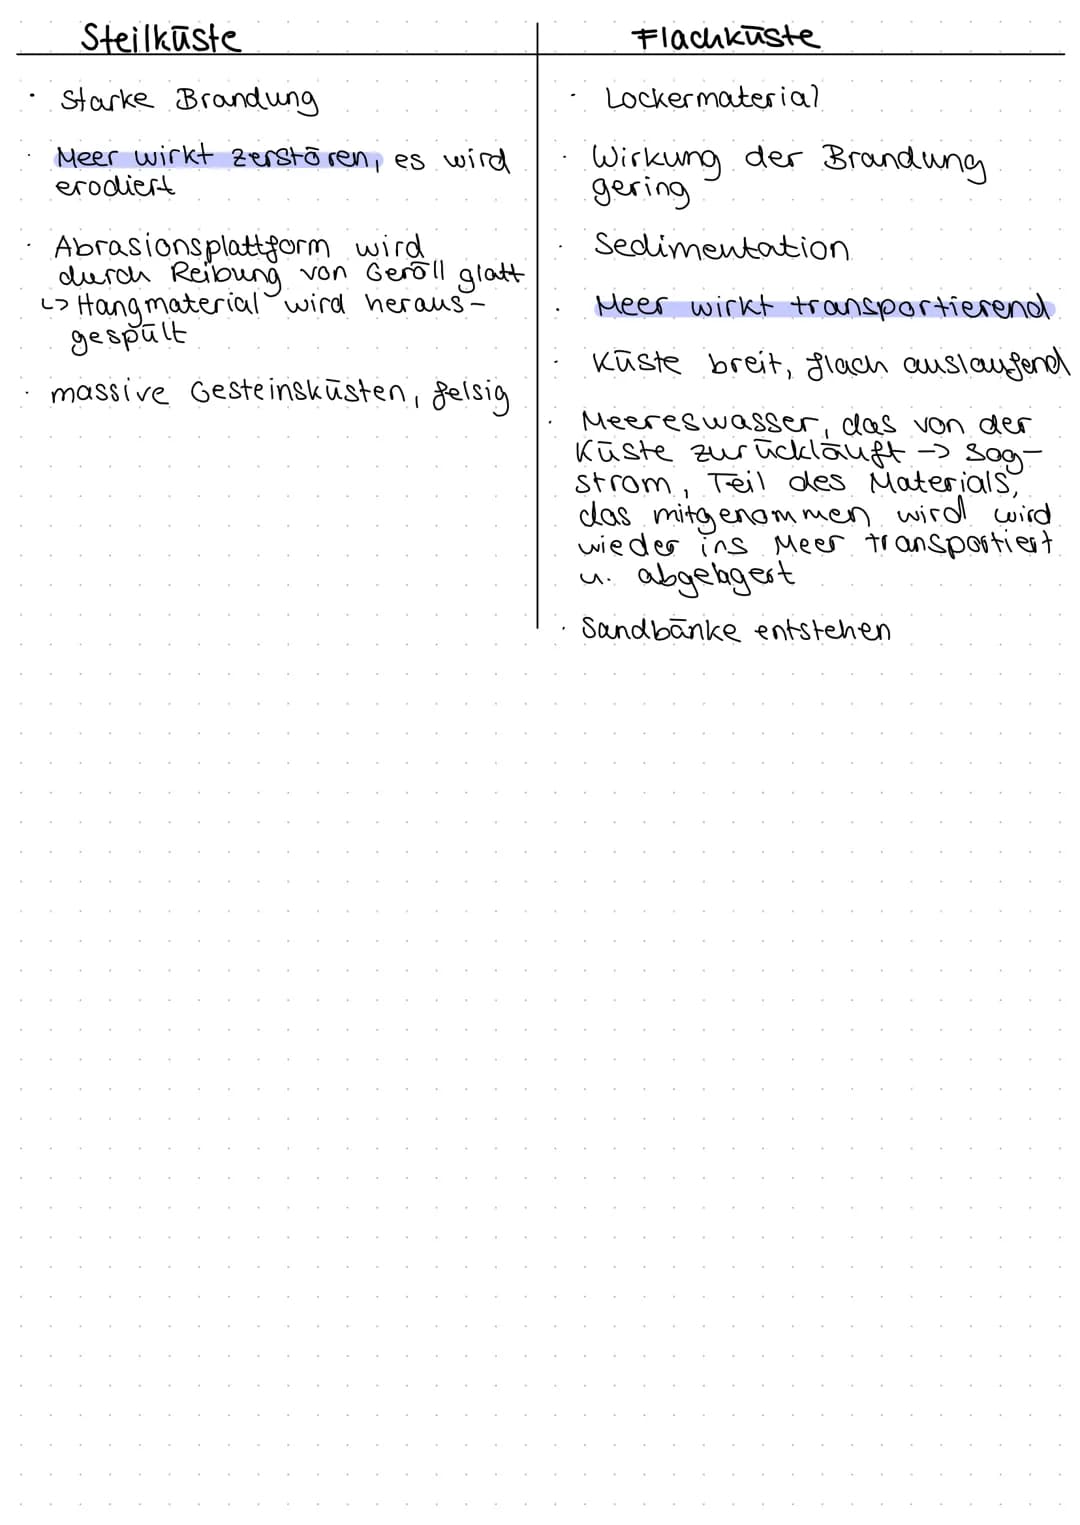 Steilküste
· Starke Brandung
· Meer wirkt zerstören, es wird
erodiert
· Abrasionsplattform wird
durch Reibung von Geröll glatt
↳ Hangmaterial wird heraus-
gespült
· massive Gesteinsküsten, felsig
Flachküste
· Lockermaterial
· Wirkung der Brandung
gering
· Sedimentation
· Meer wirkt transportierend
· Küste breit, flach auslaufend
· Meereswasser, das von der
Küste zurückläuft -> Sog-
strom, Teil des Materials,
das mitgenommen wird wird
wieder ins Meer transportiert
u. abgelagert
· Sandbänke entstehen